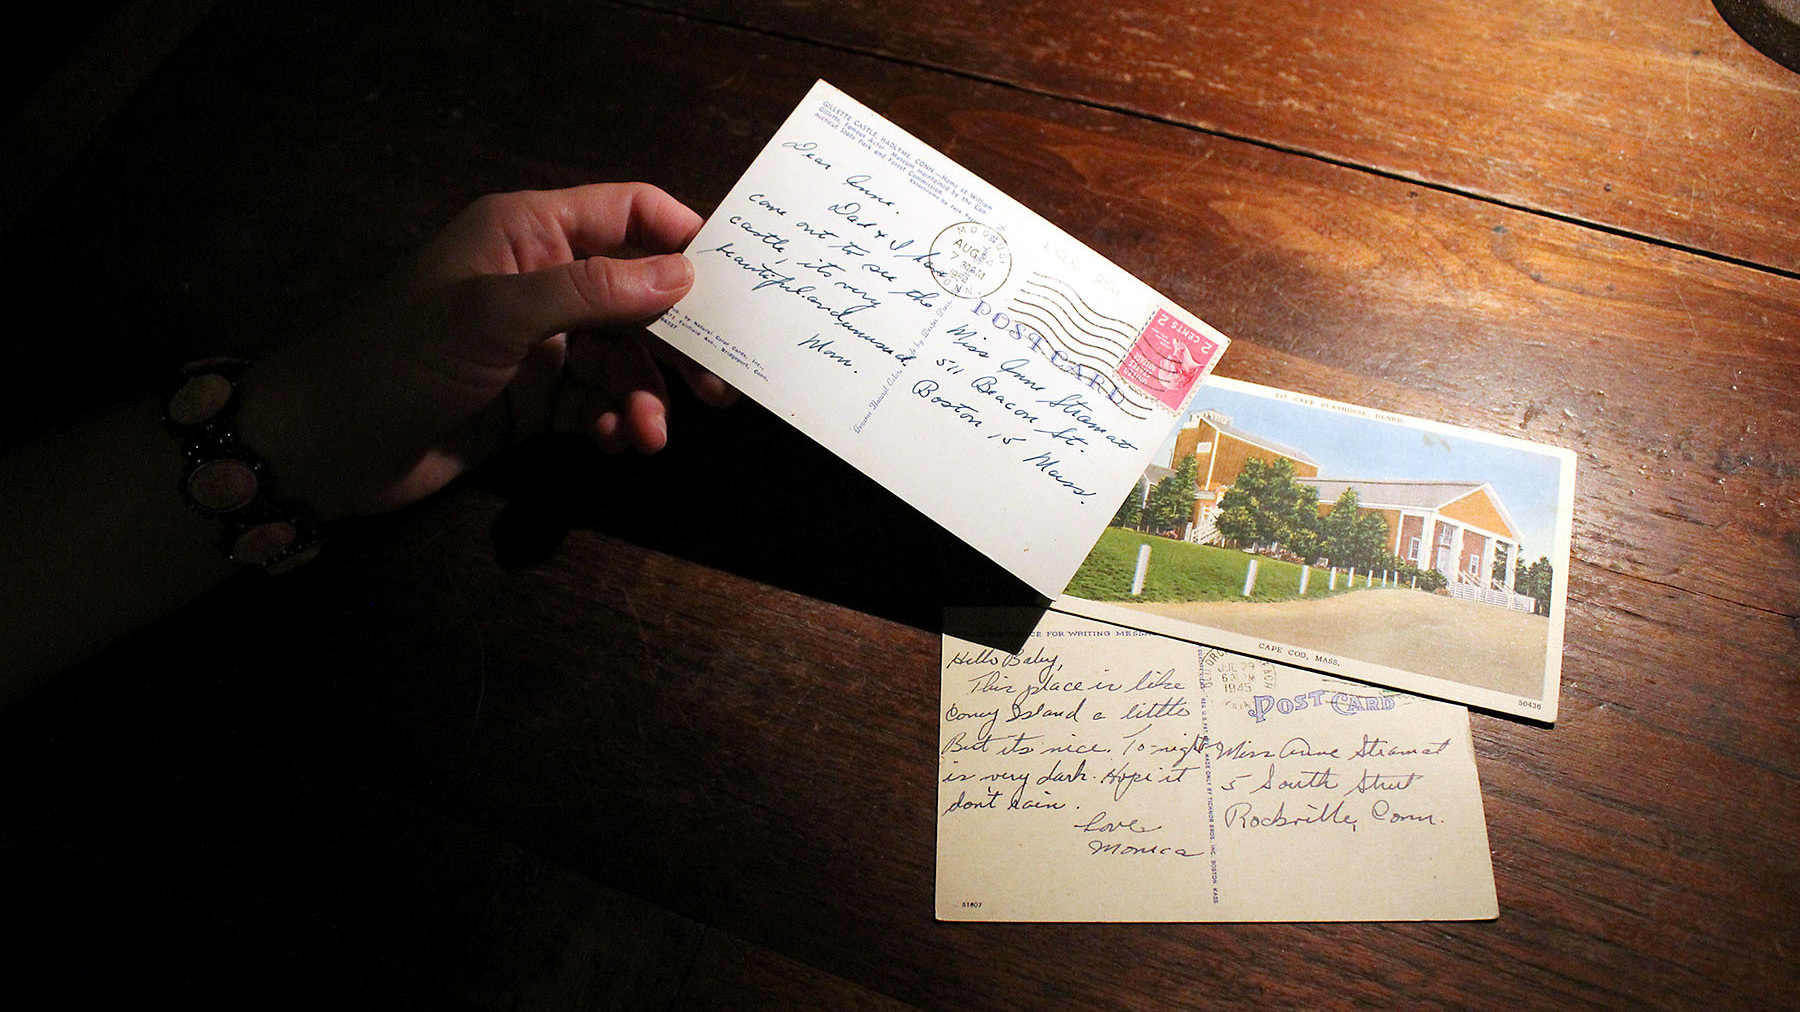 GILLETTE CASTLE, HADLYME, CONN.—Home of William
Gillette, Famous Actor. Museum maintained by the Con-
necticut State Park and Forest Commission.
Dear Anne.
Dad & I have
come out to see the
castle, its very
beautiful and unusual.
Mom.
Pub. by Natural Color Cards, Inc.,
Fairfield Ave., Bridgeport, Conn.
Natural Color
MOODUS,
AUG
7 30 AM
CONN.
POST CARD
2 CENTS 2
Miss Anne Stramat
511 Beacon St.
Boston 15 Mass.
CAPE PLAYHOUSE, DENNIS
CAPE COD, MASS.
50436
SPACE FOR WRITING MESSAGE
Hello Baby,
This place is like
Coney Island a little
But its nice. To-night
is very dark. Hope it
don't rain.
Love
Monica
61607
MADE ONLY BY TICHNOR BROS. INC. BOSTON MASS.
OLD ORCHARD BEACH
JUL 29
1945
POST CARD
Miss Anne Stramat
5 South Street
Rockville, Conn.